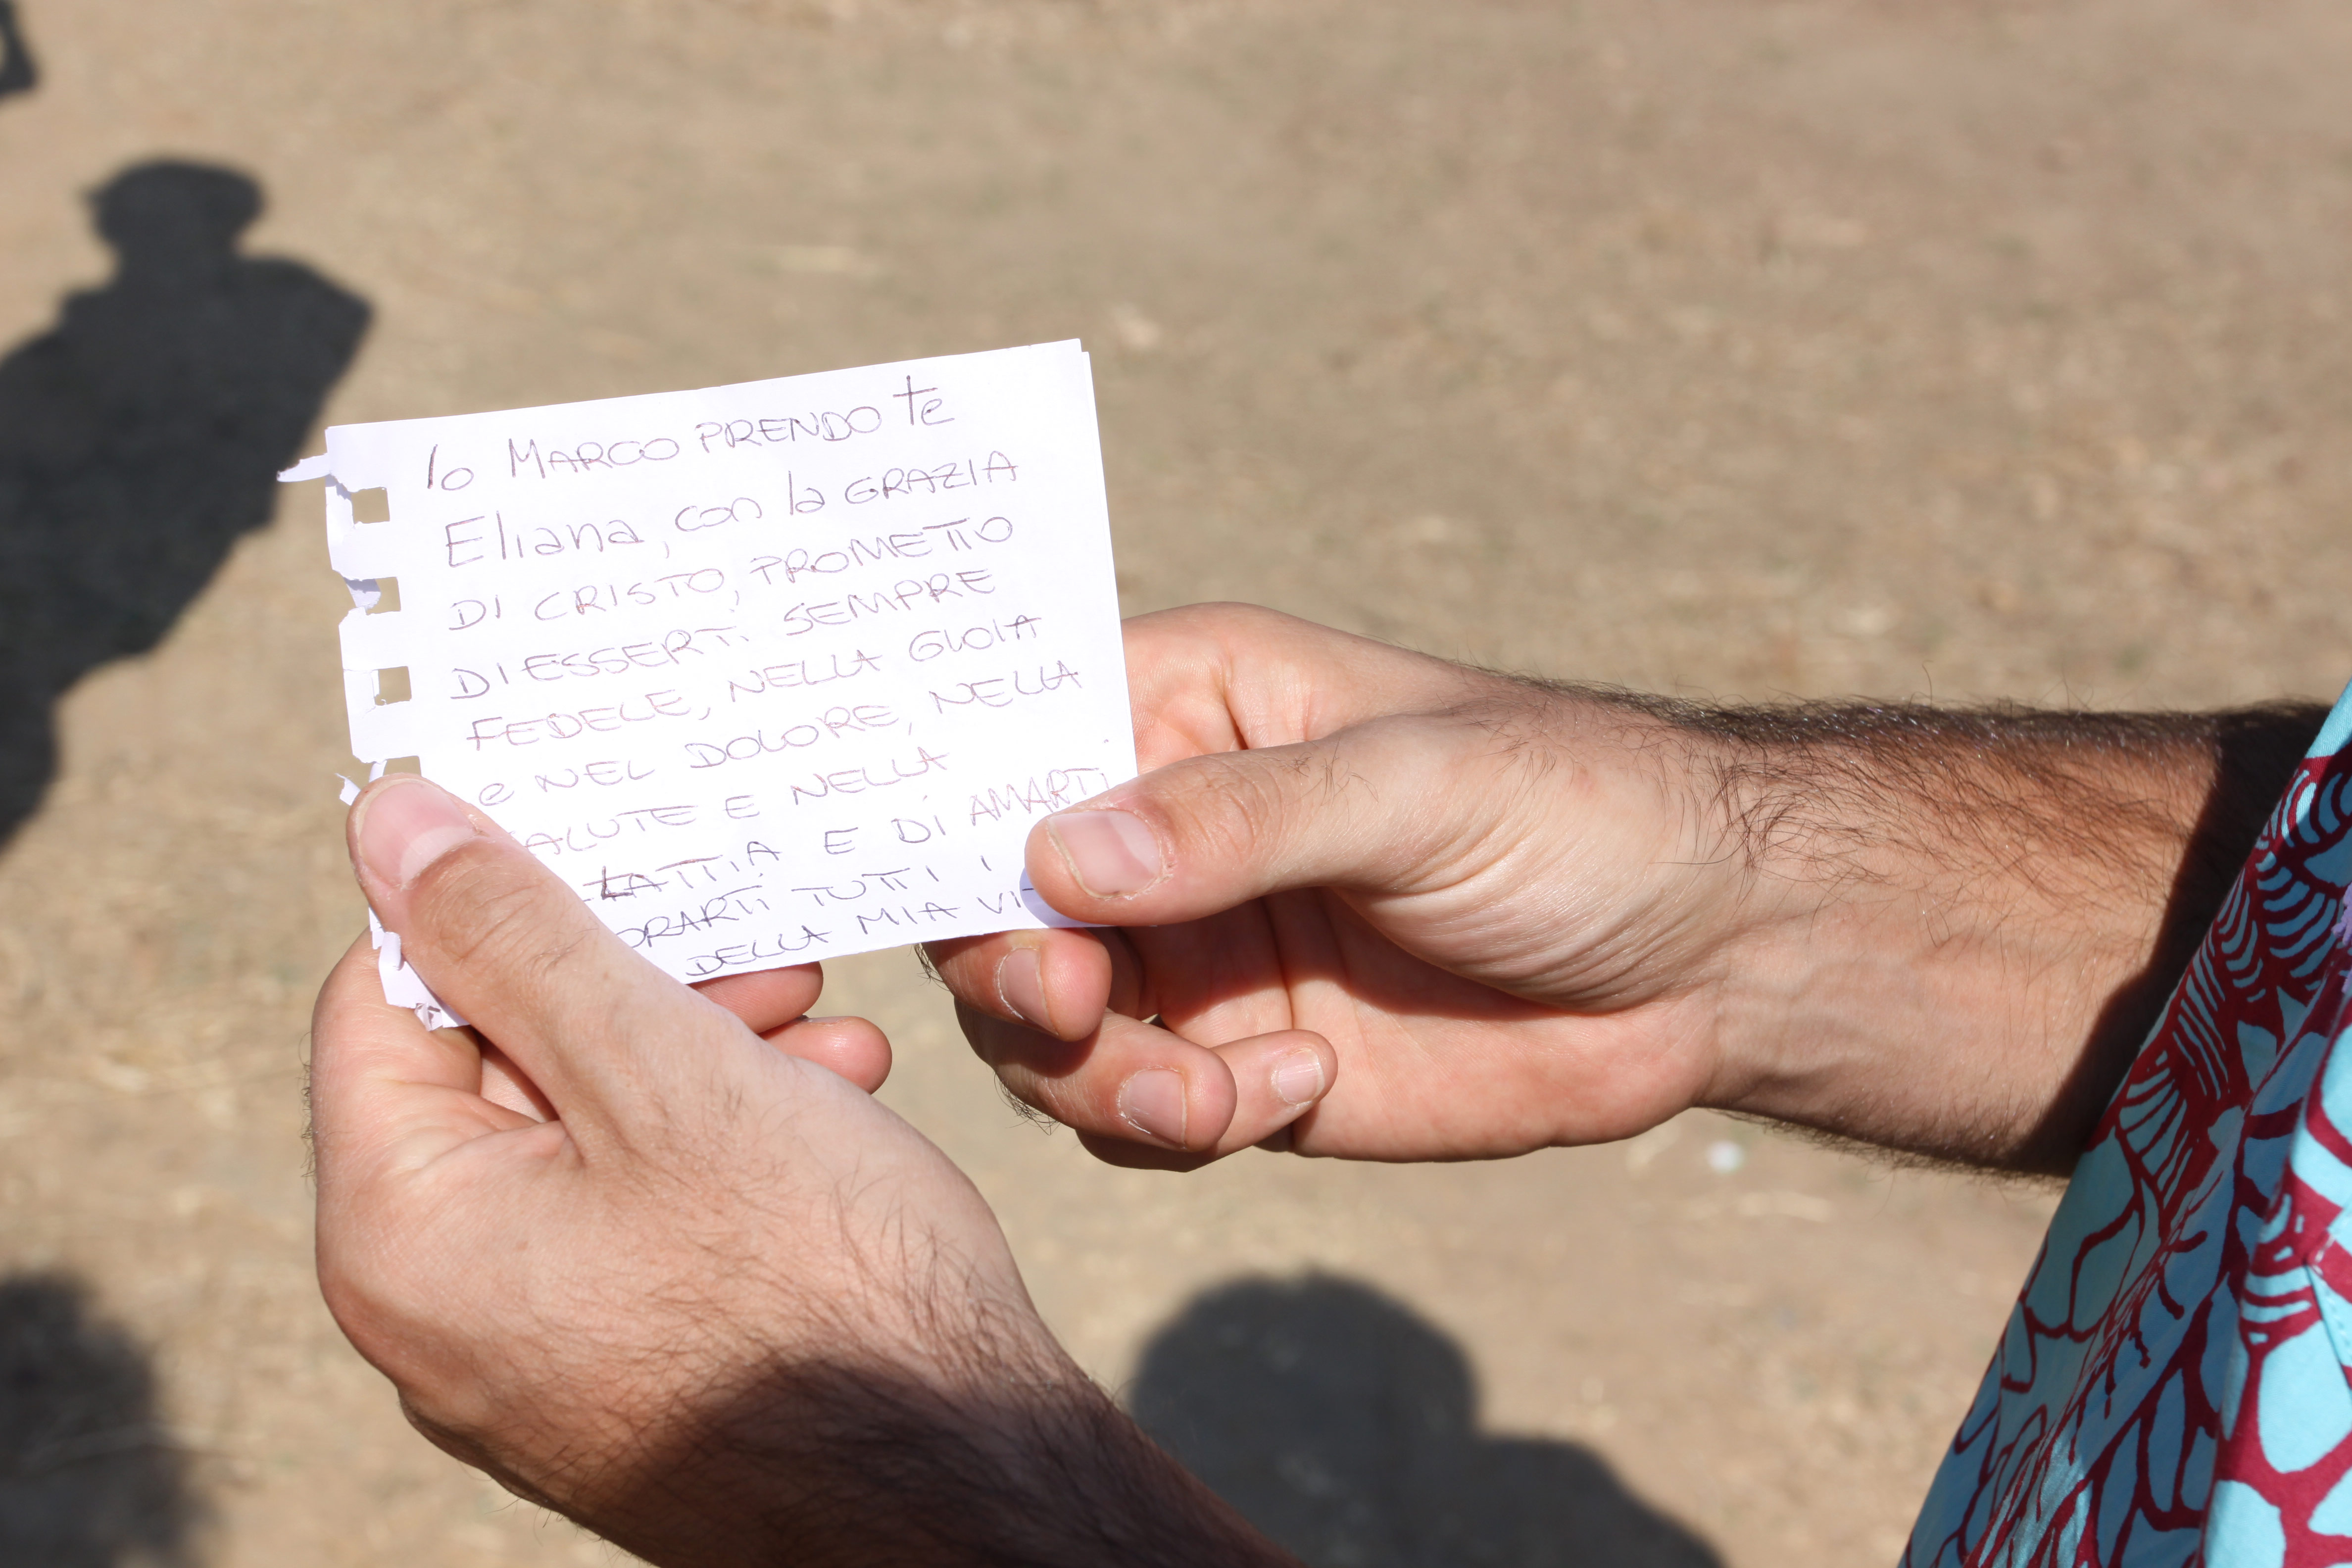 Io MARCO PRENDO te
Eliana, con la GRAZIA
DI CRISTO, PROMETTO
DI ESSERTI SEMPRE
FEDELE, NELLA GIOIA
e NEL DOLORE, NELLA
ALUTE E NELLA
LATTIA E DI AMARTI
ORARTI TUTTI I
DELLA MIA VI